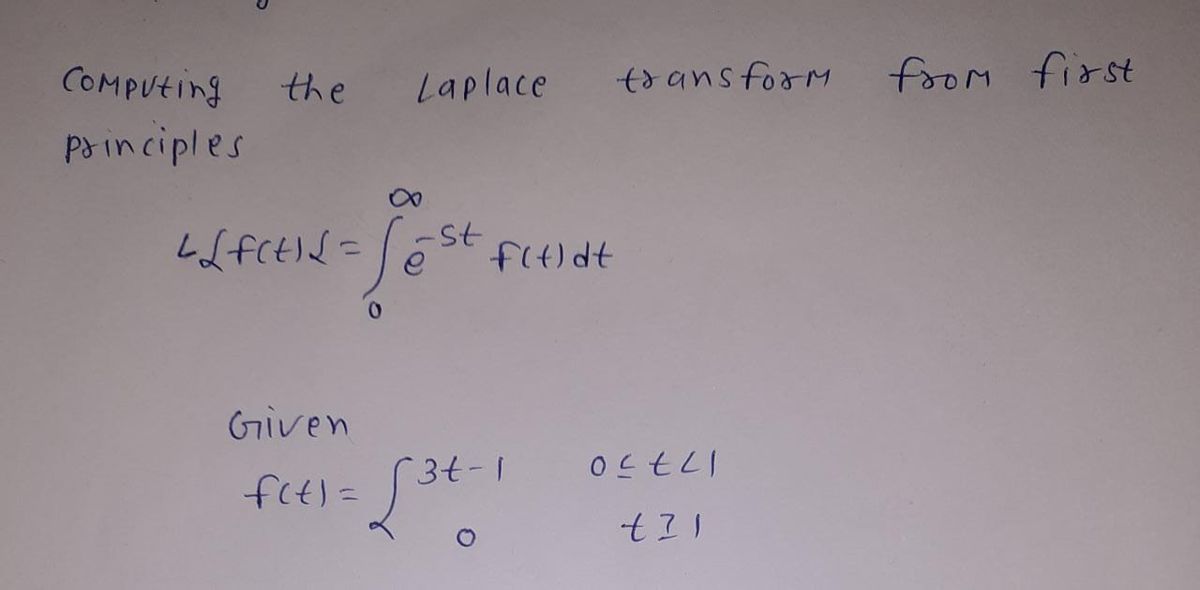 Computing the Laplace transform from first
principles
L{f(t)} = ∫₀^∞ e^-st f(t) dt
Given
f(t) = { 3t-1 0 ≤ t < 1
0 t ≥ 1